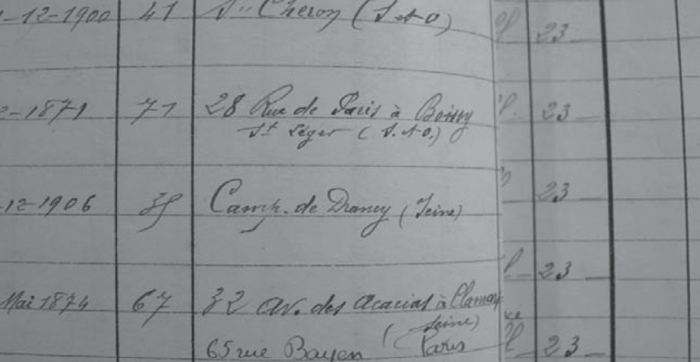 -12-1900 41 Ste Chéron (S.&O) 23
-1871 71 28 Rue de Paris à Boissy 23
St Léger (S.&O.)
-12-1906 35 Camp. de Drancy (Seine) 23
23
Mai 1874 67 32 av. des Acacias à Clamart
(Seine)
65 rue Bayen (Paris 23